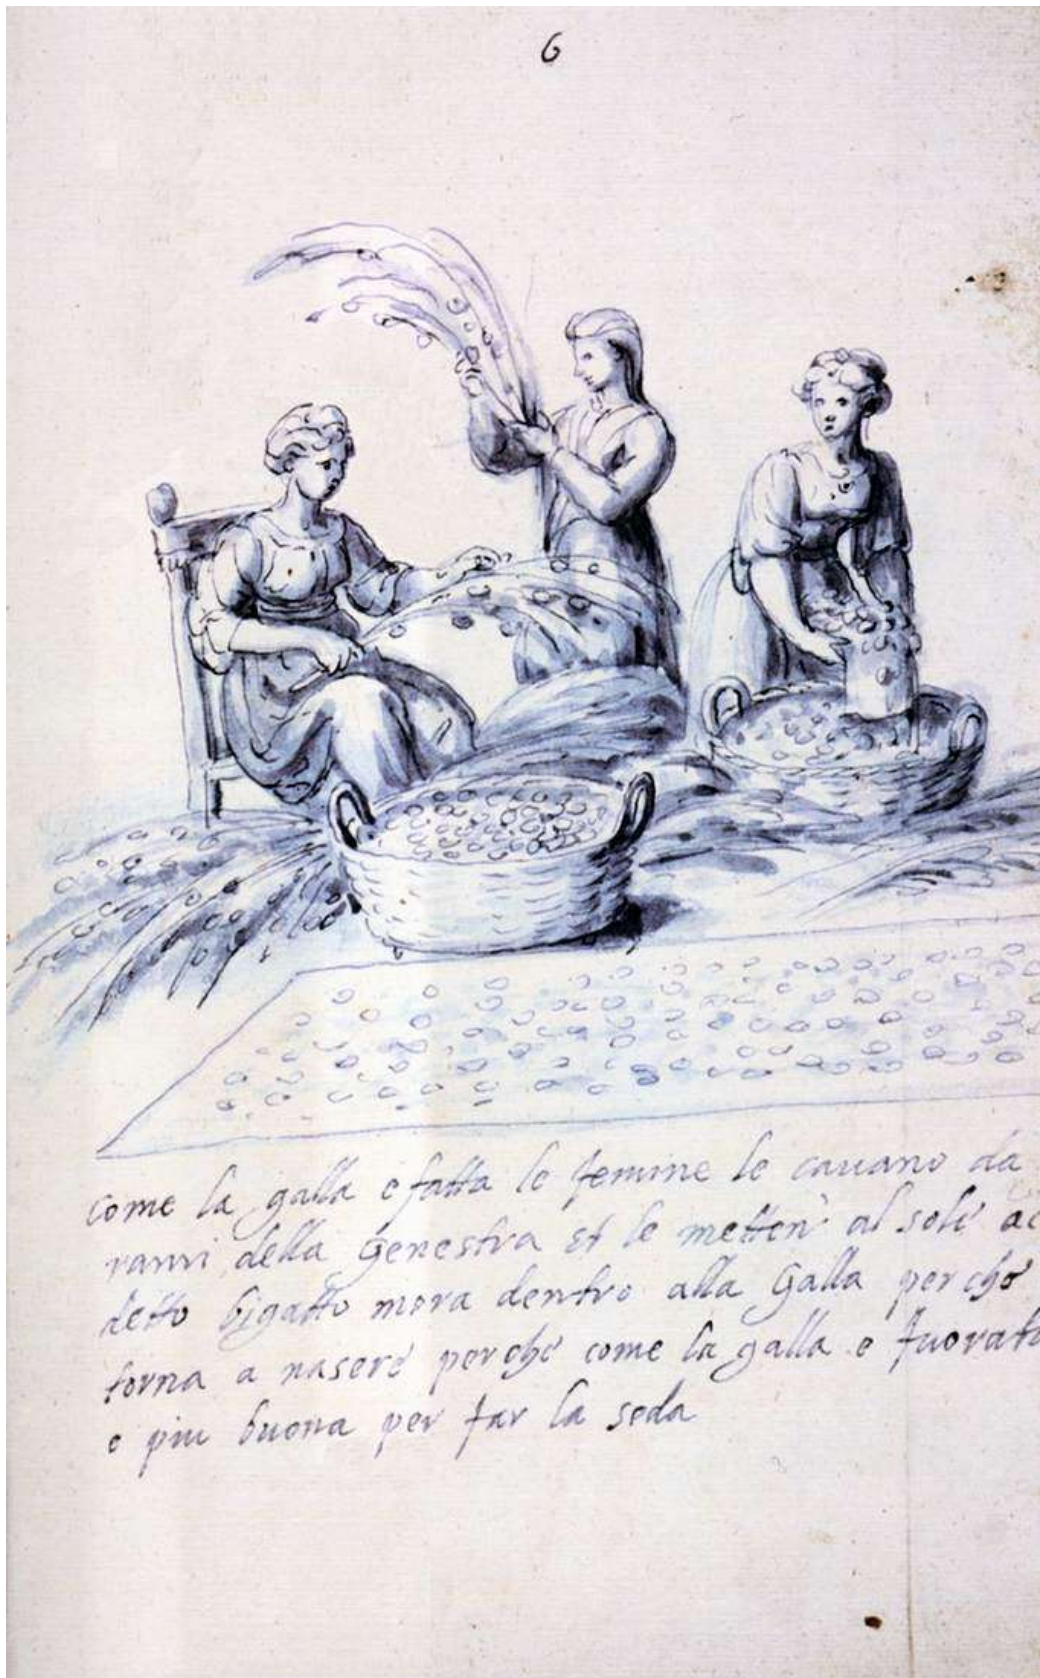 6
come la galla e fatta le femine le cavano da
rami della Genestra et le metten al sole ac
detto bigatto mora dentro alla Galla perche
torna a nasere perche come la galla e fuorata
e piu buona per far la seda